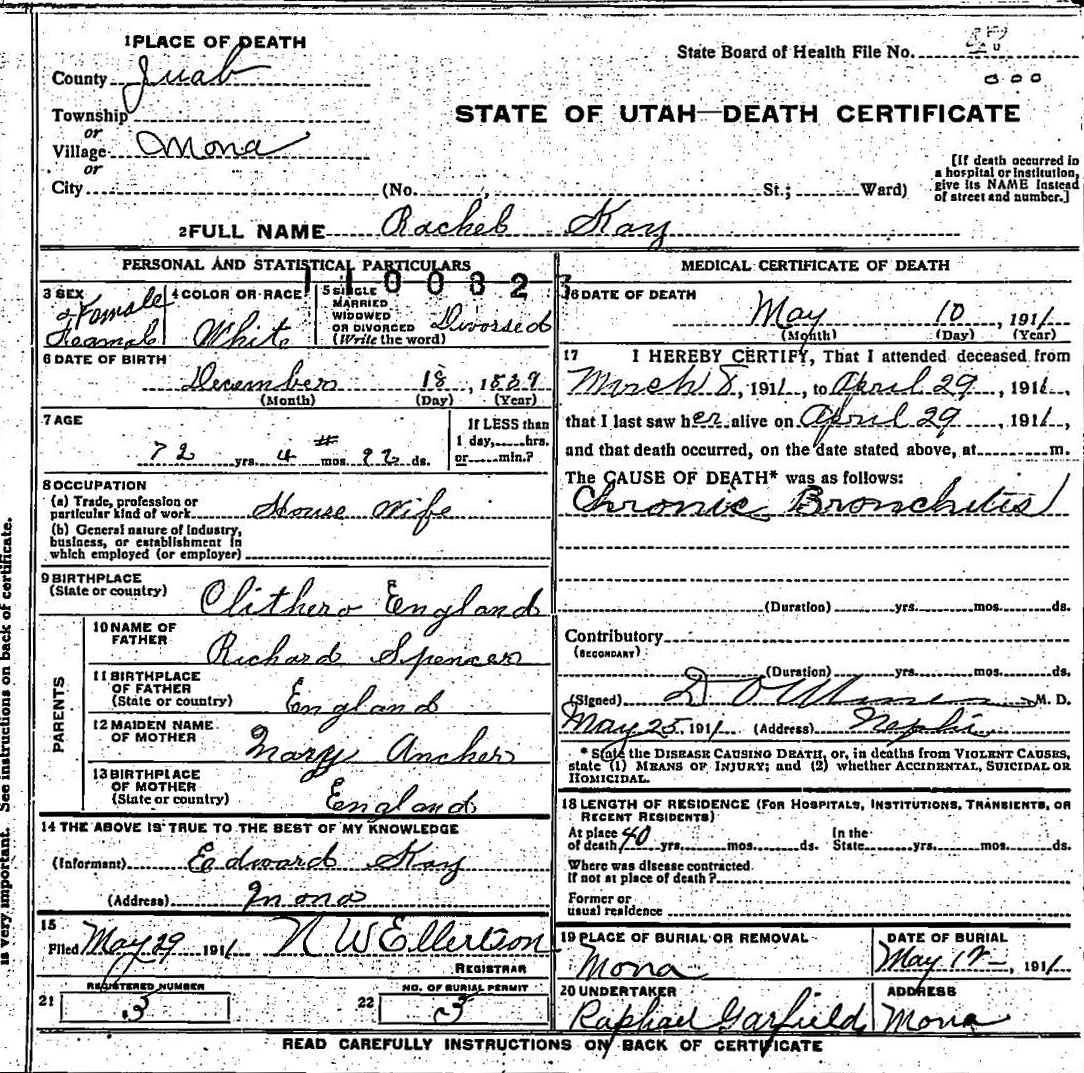 1 PLACE OF DEATH
State Board of Health File No.
County Juab
STATE OF UTAH—DEATH CERTIFICATE
Township
or
Village Mona
or
City (No. St.; Ward)
[If death occurred in
a hospital or institution,
give its NAME instead
of street and number.]
2 FULL NAME Rachel Kay
PERSONAL AND STATISTICAL PARTICULARS
1100323
3 SEX
Female
Feamale
4 COLOR OR RACE
White
5 SINGLE
MARRIED
WIDOWED
OR DIVORCED
(Write the word)
Divorsed
6 DATE OF BIRTH
December 18, 1839
(Month) (Day) (Year)
7 AGE
72 yrs. 4 mos. 22 ds.
If LESS than
1 day, hrs.
or min.?
8 OCCUPATION
(a) Trade, profession or
particular kind of work House Wife
(b) General nature of industry,
business, or establishment in
which employed (or employer)
9 BIRTHPLACE
(State or country) Clithero England
PARENTS
10 NAME OF
FATHER
Richard Spencer
11 BIRTHPLACE
OF FATHER
(State or country) England
12 MAIDEN NAME
OF MOTHER
Mary Ancher
13 BIRTHPLACE
OF MOTHER
(State or country) England
14 THE ABOVE IS TRUE TO THE BEST OF MY KNOWLEDGE
(Informant) Eadward Kay
(Address) Mona
15
Filed May 29 1911 N W Ellertson
REGISTRAR
21
REGISTERED NUMBER
5
22
NO. OF BURIAL PERMIT
5
MEDICAL CERTIFICATE OF DEATH
16 DATE OF DEATH
May 10, 1911
(Month) (Day) (Year)
17 I HEREBY CERTIFY, That I attended deceased from
March 8, 1911, to April 29, 1911,
that I last saw her alive on April 29, 1911,
and that death occurred, on the date stated above, at m.
The CAUSE OF DEATH* was as follows:
Chronic Bronchitis
(Duration) yrs. mos. ds.
Contributory
(SECONDARY)
(Duration) yrs. mos. ds.
(Signed) M. D.
May 25, 1911 (Address) Nephi
* State the DISEASE CAUSING DEATH, or, in deaths from VIOLENT CAUSES,
state (1) MEANS OF INJURY; and (2) whether ACCIDENTAL, SUICIDAL OR
HOMICIDAL.
18 LENGTH OF RESIDENCE (FOR HOSPITALS, INSTITUTIONS, TRANSIENTS, OR
RECENT RESIDENTS)
At place
of death 40 yrs. mos. ds.
In the
State yrs. mos. ds.
Where was disease contracted.
If not at place of death?
Former or
usual residence
19 PLACE OF BURIAL OR REMOVAL
Mona
DATE OF BURIAL
May 12, 1911
20 UNDERTAKER
Raphael Garfield
ADDRESS
Mona
READ CAREFULLY INSTRUCTIONS ON BACK OF CERTIFICATE
is very important. See instructions on back of certificate.